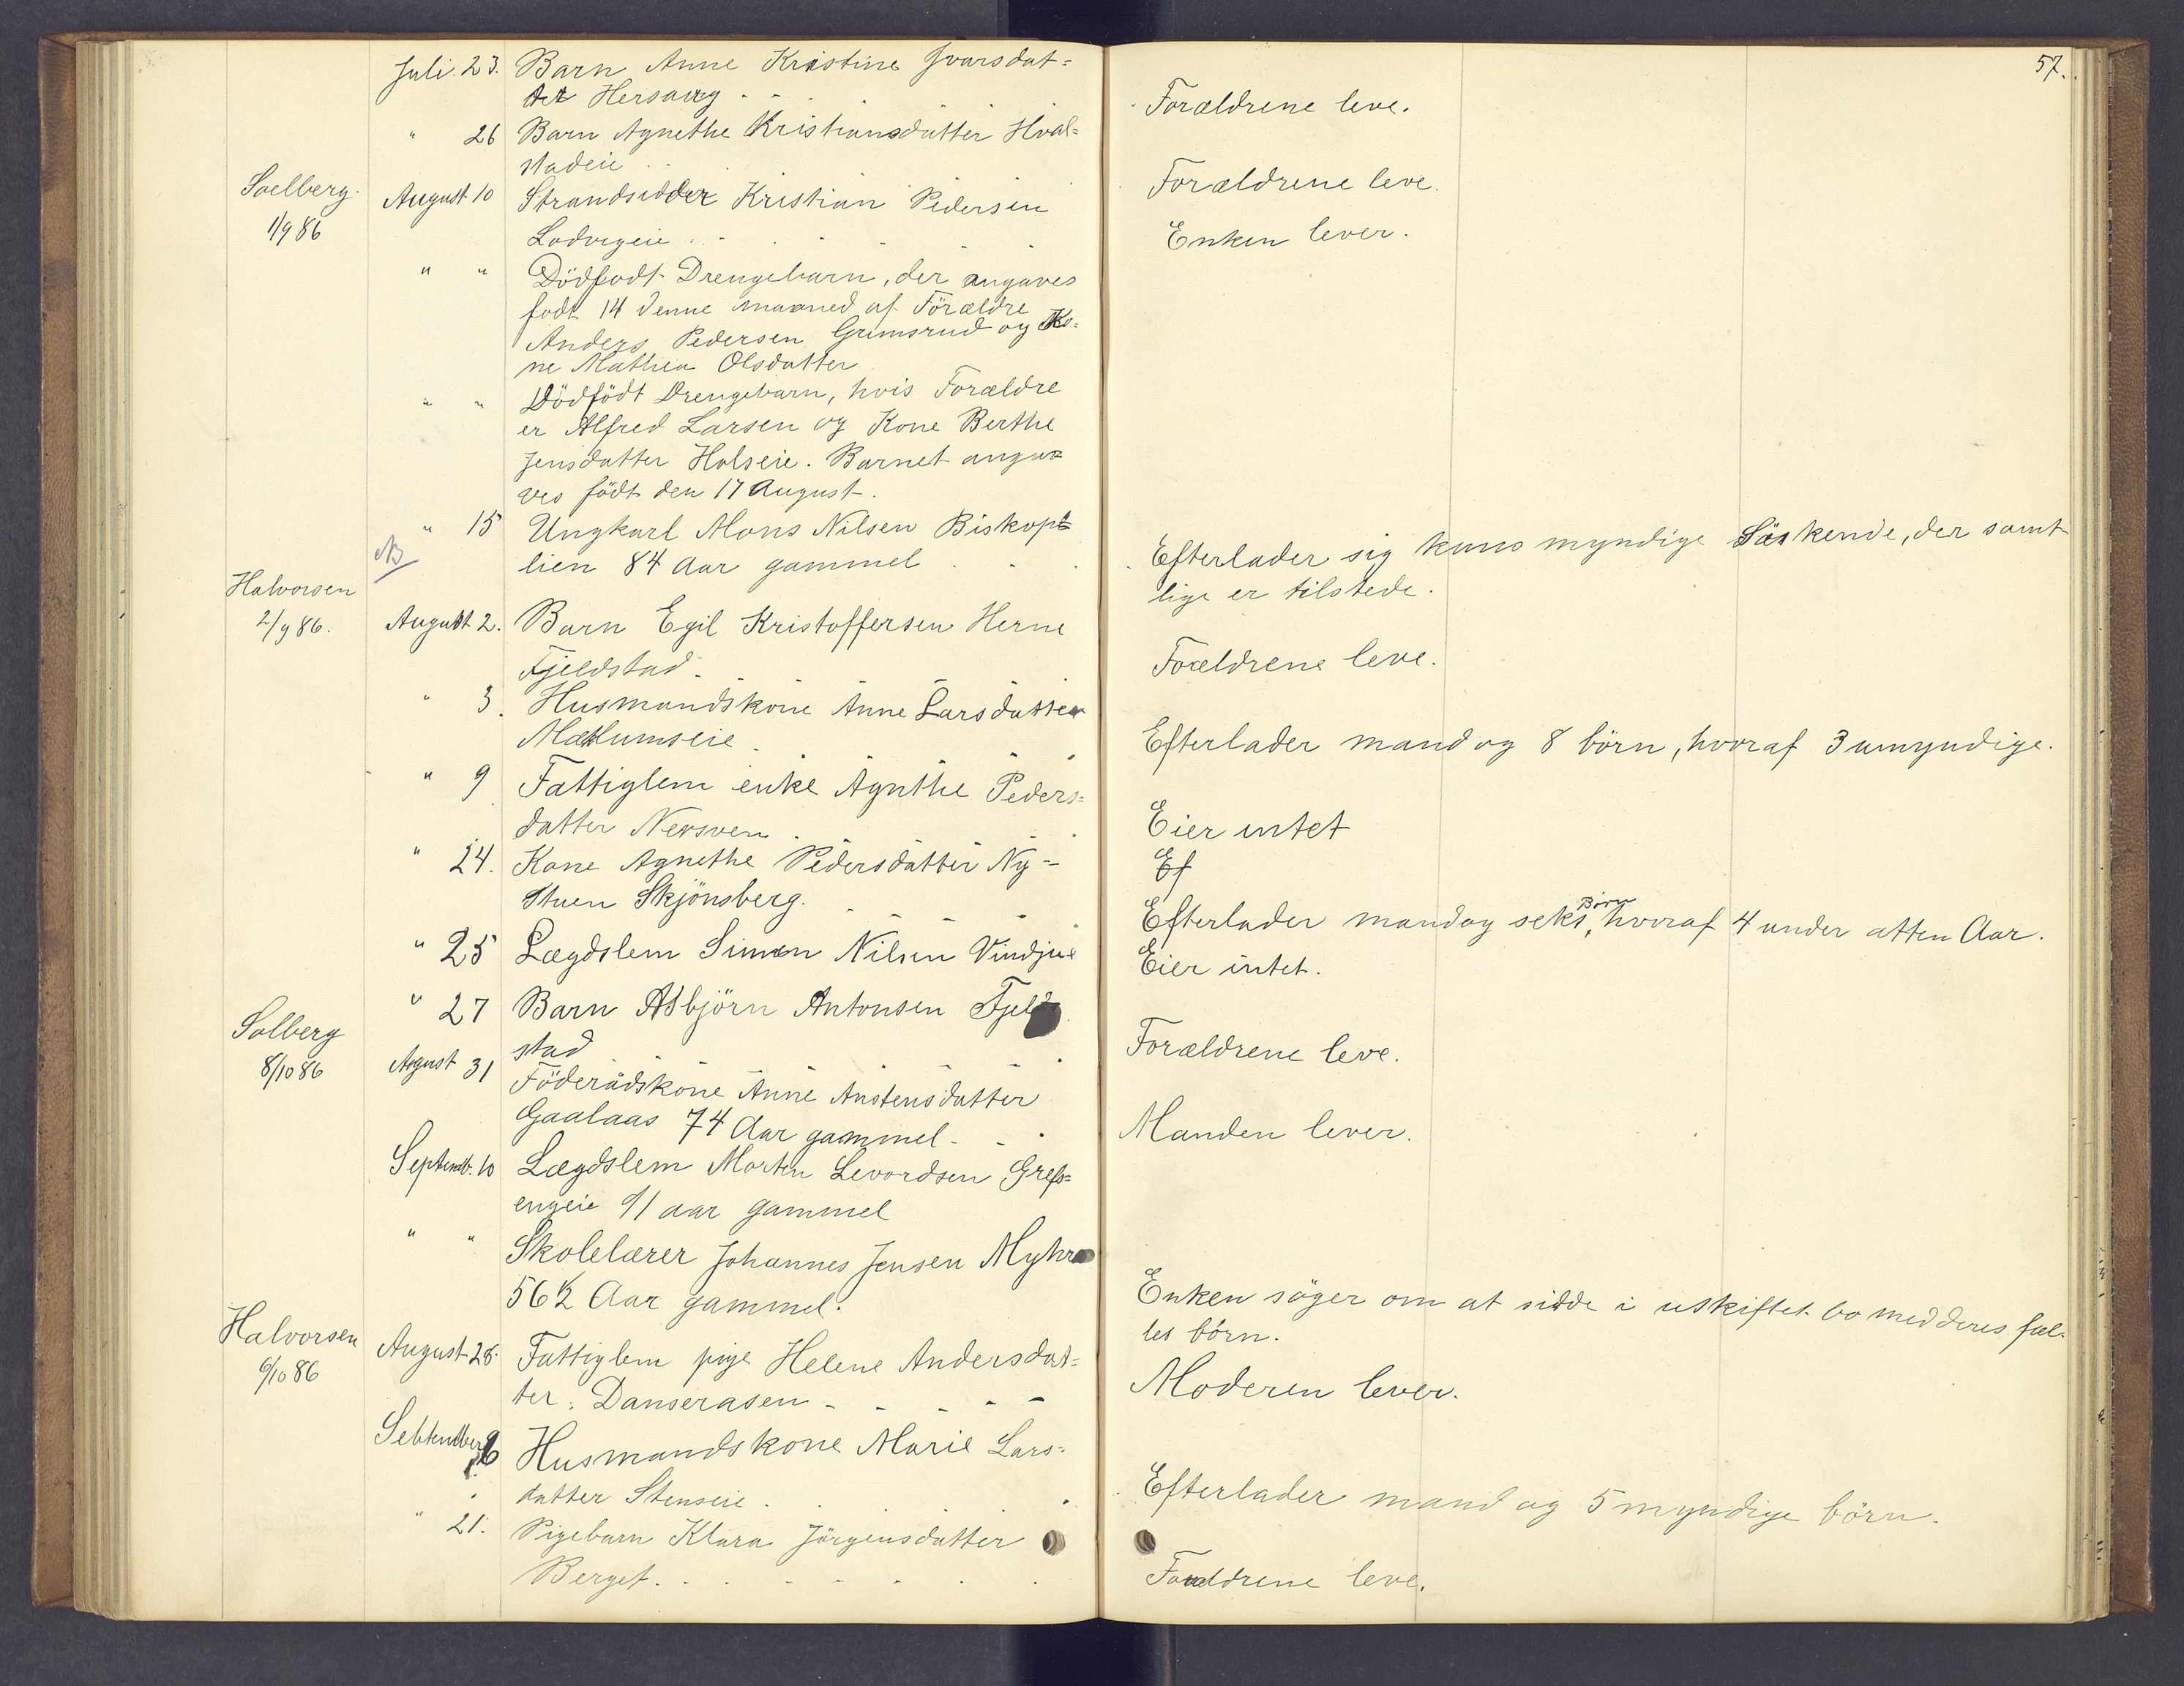 57.
Juli 23. Barn Anne Kristine Ivarsdat=
ter Hersaug - - Forældrene leve.
" 26 Barn Agnethe Kristiansdatter Hval=
stadeie Forældrene leve.
Soelberg 1/9 86
August 10 Strandsidder Kristian Pedersen
Lodvigeie Enken lever.
" " Dödfodt Drengebarn, der angaves
fodt 14 denne maaned af Forældre
Anders Pedersen Grimsrud og Ko=
ne Mathea Olsdatter
" " Dödfödt Drengebarn, hvis Forældre
er Alfred Larsen og Kone Berthe
Jensdatter Holseie. Barnet anga=
ves födt den 17 August.
" 15 Ungkarl Mons Nilsen Biskops
lien 84 Aar gammel
Efterlader sig kuns myndige Söskende, der samt-
lige er tilstede.
NB
Halvorsen
2/9 86.
August 2. Barn Egil Kristoffersen Herne
Fjeldstad - Forældrene leve.
" 3. Husmandskone Anne Larsdatter
Mælumseie Efterlader mand og 8 börn, hvoraf 3 umyndige.
" 9 Fattiglem enke Agnthe Peders=
datter Nersveen Eier intet
" 24. Kone Agnethe Pedersdatter Ny=
Ef
stuen Skjönsberg.
Börn
Efterlader mand og seks, hvoraf 4 under atten Aar.
" 25 Lægdslem Simen Nilsen Vindjue Eier intet.
" 27 Barn Asbjörn Antonsen Fjeld
stad Forældrene leve.
Solberg
8/10 86
August 31 Föderådskone Anne Anstensdatter
Gaalaas 74 Aar gammel - - Manden lever.
Septemb. 10 Lægdslem Morten Levordsen Grefs=
engeie 91 aar gammel
" " Skolelærer Johannes Jensen Myhre
56 1/2 Aar gammel.
Enken söger om at sidde i uskiftet bo med deres fæl-
les börn.
Halvorsen
6/10 86
August 28. Fattiglem pige Helene Andersdat=
ter. Danserasen - - - - - Moderen lever.
Sebtember 16 Husmandskone Marie Lars=
datter Stenseie. Efterlader mand og 5 myndige börn.
" 21. Pigebarn Klara Jörgensdatter
Berget. Forældrene leve.